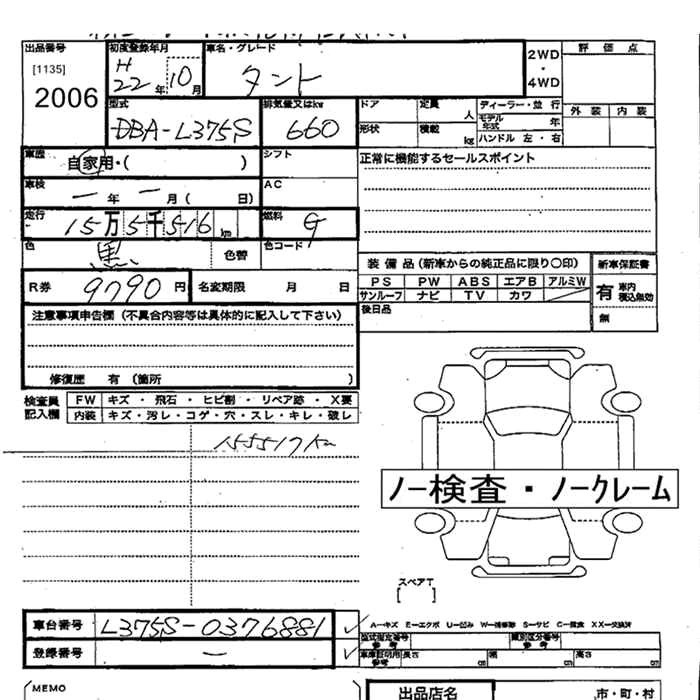 出品番号 初度登録年月 車名・グレード 2WD・4WD 評価点
[1135] H22年10月 タント
2006 外装 内装
型式 排気量又はkw ドア 定員 人 ディーラー・並行
DBA-L375S 660 形状 積載 kg モデル年式 年
ハンドル 左・右
車歴 自家用・( ) シフト 正常に機能するセールスポイント
車検 ー年ー月( 日) AC
走行 15万5千516km 燃料 G
色 黒 色替 色コード
装備品(新車からの純正品に限り〇印) 新車保証書
R券 9790円 名変期限 月 日 PS PW ABS エアB アルミW 有 車内積込無効
サンルーフ ナビ TV カワ
注意事項申告欄(不具合内容等は具体的に記入して下さい) 後日品 無
修復歴 有(箇所 )
検査員記入欄 FW キズ・飛石・ヒビ割・リペア跡・X要
内装 キズ・汚レ・コゲ・穴・スレ・キレ・破レ
155517km
ノー検査・ノークレーム
スペアT
[ ]
車台番号 L375S-0376881 A-キズ E-エクボ U-凹み W-補修跡 S-サビ C-腐食 XX-交換済
型式指定番号 参考 類別区分番号 参考
登録番号 ー 車庫証明用参考 長さ cm 幅 cm 高さ cm
MEMO 出品店名 市・町・村